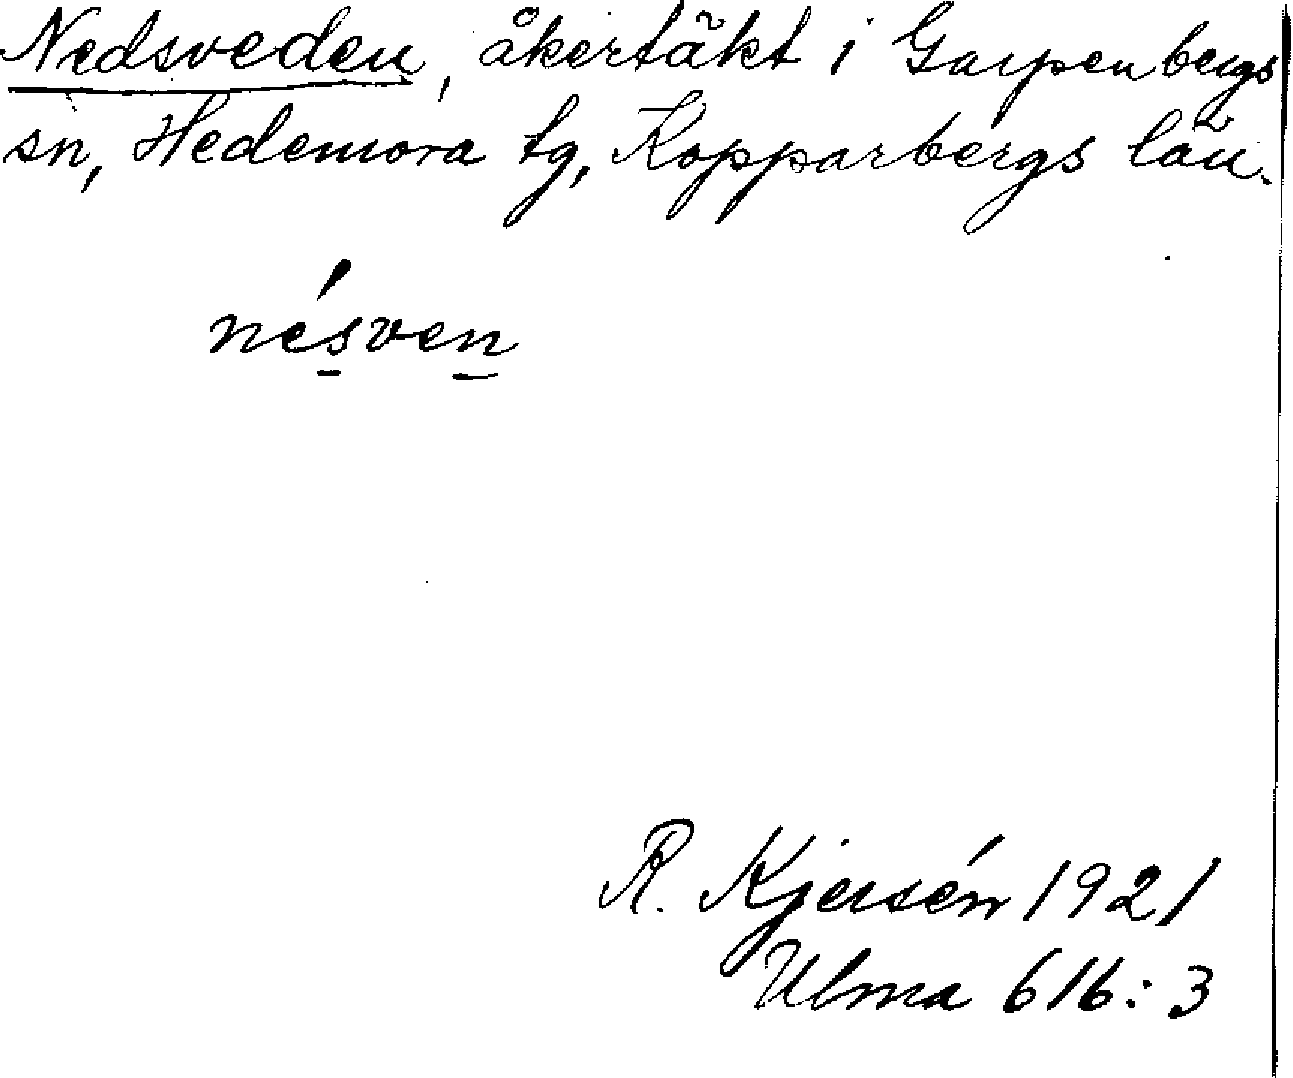 Nedsveden, åkertäkt i Garpenbergs
sn, Hedemora tg, Kopparbergs län.
nésven
R. Kjersén 1921
Ulma 616:3